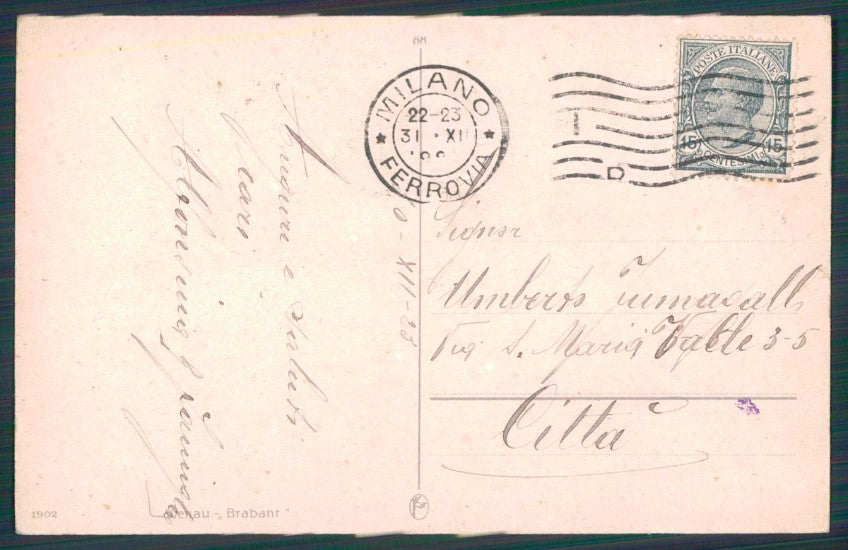 MILANO
22-23
31 · XII
FERROVIA
POSTE ITALIANE
15 CENTESIMI 15
Auguri e saluti
cari
-XII-23
Signor
Umberto Fumagalli
Via S. Maria Valle 3-5
Città
1902
"Brabant"